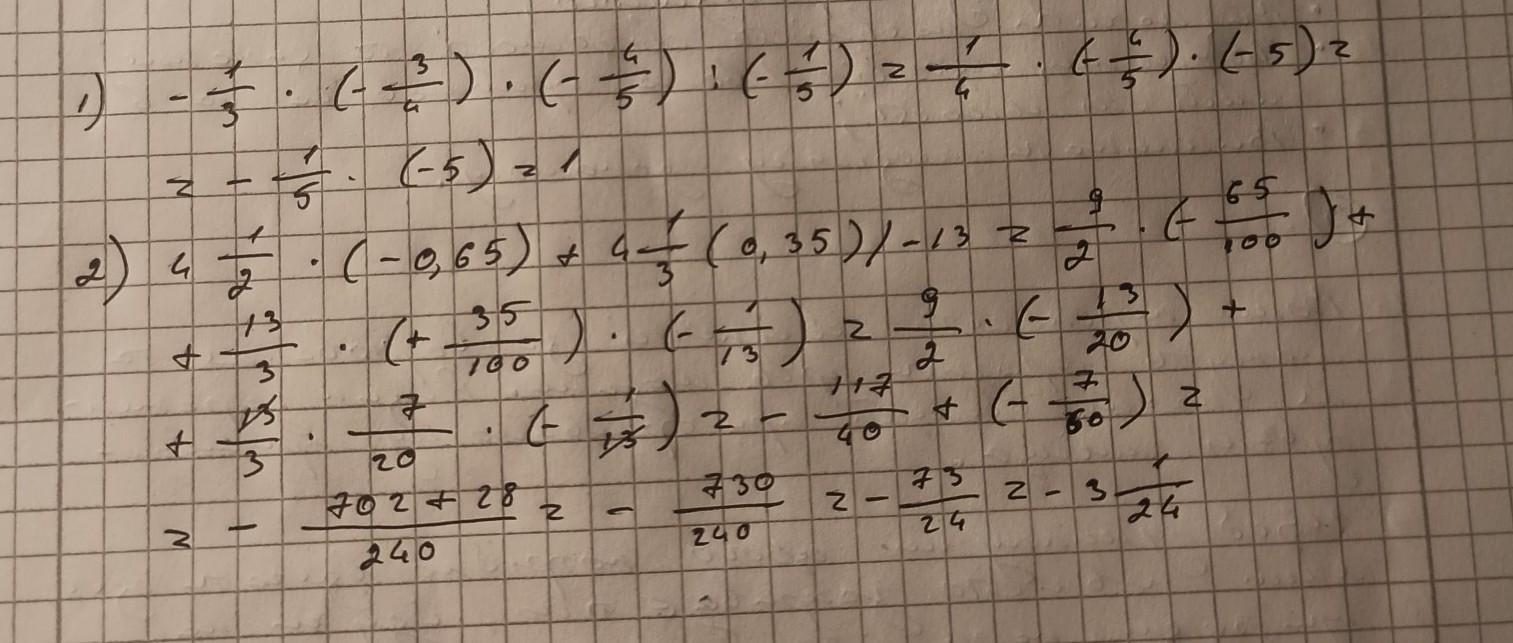 1) - 1/3 · (- 3/4) · (- 4/5) : (- 1/5) = 1/4 · (- 4/5) · (-5) =
= - 1/5 · (-5) = 1
2) 4 1/2 · (-0,65) + 4 1/3 (0,35) / -13 = 9/2 · (- 65/100) +
+ 13/3 · (+ 35/100) · (- 1/13) = 9/2 · (- 13/20) +
+ 13/3 · 7/20 · (- 1/13) = - 117/40 + (- 7/60) =
= - 702 + 28/240 = - 730/240 = - 73/24 = - 3 1/24